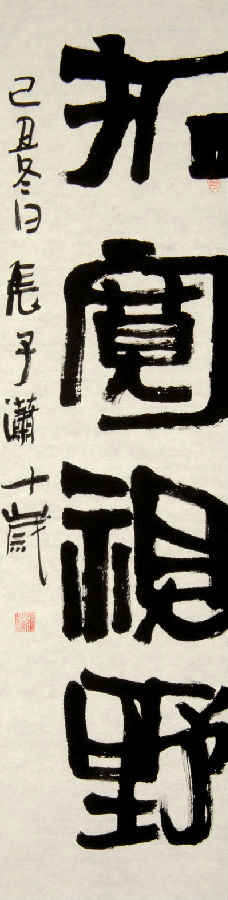 拓寛視野
己丑冬日張子瀟十歲